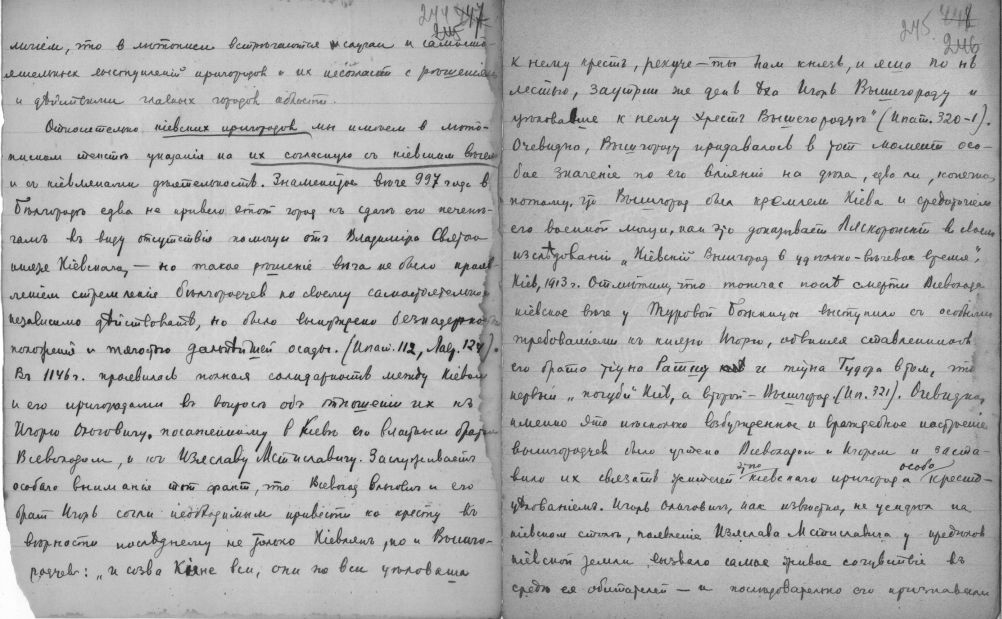 244 247
245
мѣчаем, что в лѣтописи встрѣчаются случаи и самосто-
ятельных выступленiй пригородов и их несогласiя с рѣшенiями
и дѣйствiями главных городов области.
Относительно кiевских пригородов мы имѣем в лѣто-
писном текстѣ указанiя на их согласную съ кiевским вѣчем
и съ кiевлянами дѣятельность. Знаменитое вѣче 997 года в
Бѣлгородѣ едва не привело этот город къ сдачѣ его печенѣ-
гамъ въ виду отсутствiя помощи отъ Владимiра Святого
князя Кiевскаго, — но такое рѣшенiе вѣча не было прояв-
ленiем стремленiя бѣлгородцев по своему самостоятельно
независимо дѣйствовать, но было вынуждено безнадежность
положенiя и тягостью дальнѣйшей осады. (Ипат. 112, Лавр. 124).
Въ 1146 г. проявилась полная солидарность между Кiевом
и его пригородами въ вопросѣ объ отношенiи их къ
Игорю Ольговичу, посаженному в Кiевѣ его властным братом
Всеволодом, и къ Изяславу Мстиславичу. Заслуживаетъ
особаго вниманiя тот факт, что Всеволод Ольгович и его
брат Игорь сочли необходимым привести ко кресту въ
вѣрности послѣднему не только Кiевлянъ, но и Вышго-
родцев: „и созва Кiяне вси, они же вси цѣловаша
245. 246
к нему крестъ, рекуче — ты нам князь, и яша по нь
лестью, заутрии же день ѣха Игорь Вышегороду и
цѣловавше к нему хрестъ Вышегородцѣ“ (Ипат. 320-1).
Очевидно, Вышгороду придавалось в тот момент осо-
бое значенiе по его влiянiю на дѣла, едва ли, конечно,
потому, что Вышгород был кремлем Кiева и средоточiем
его военной мощи, как это доказывает Ляскоронскiй в своем
изслѣдованiи „Кiевскiй Вышгород в удѣльно-вѣчевое время“,
Кiев, 1913 г. Отмѣтим, что тотчас послѣ смерти Всеволода
кiевское вѣче у Туровой Божницы выступило съ особыми
требованiями къ князю Игорю, обвиняя ставленников
его брата тiуна Ратшу и тiуна Тудора в том, что
первый „погуби“ Кiев, а второй — Вышгород (Ип. 321). Очевидно,
именно это нѣсколько возбужденное и враждебное настроенiе
вышгородцев было учтено Всеволодом и Игорем и заста-
вило их связать жителей этого кiевскаго пригорода особо крестo-
цѣлованiем. Игорь Ольгович, как извѣстно, не усидѣл на
кiевском столѣ, появленiе Изяслава Мстиславича у предѣлов
кiевской земли вызвало самое живое сочувствiе въ
средѣ ея обитателей — и послѣдовательно его признавали